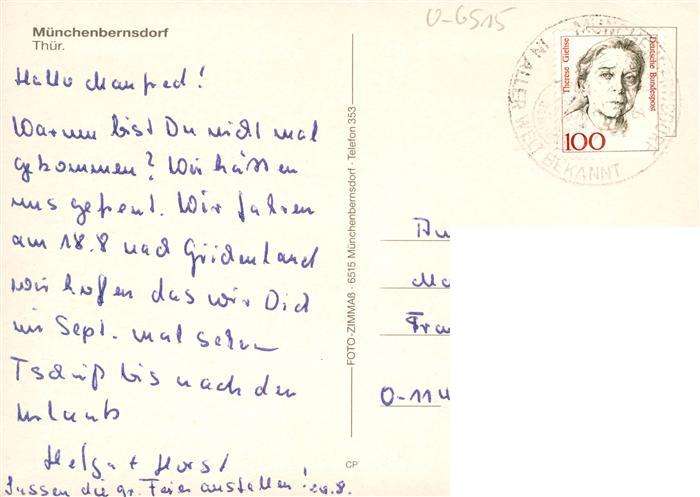 Münchenbernsdorf
Thür.
Hallo Manfred!
Warum bist Du nicht mal
gekommen? Wir hätten
uns gefreut. Wir fahren
am 18.8 nach Griechenland
wir hoffen das wir Dich
im Sept. mal sehen
Tschüß bis nach den
Urlaub
Helga + Horst
FOTO-ZIMMAß · 6515 Münchenbernsdorf · Telefon 353
CP
O-6515
Therese Giehse
Deutsche Bundespost
100
IN ALLER WELT BEKANNT
An
Ma
Fra
O-114